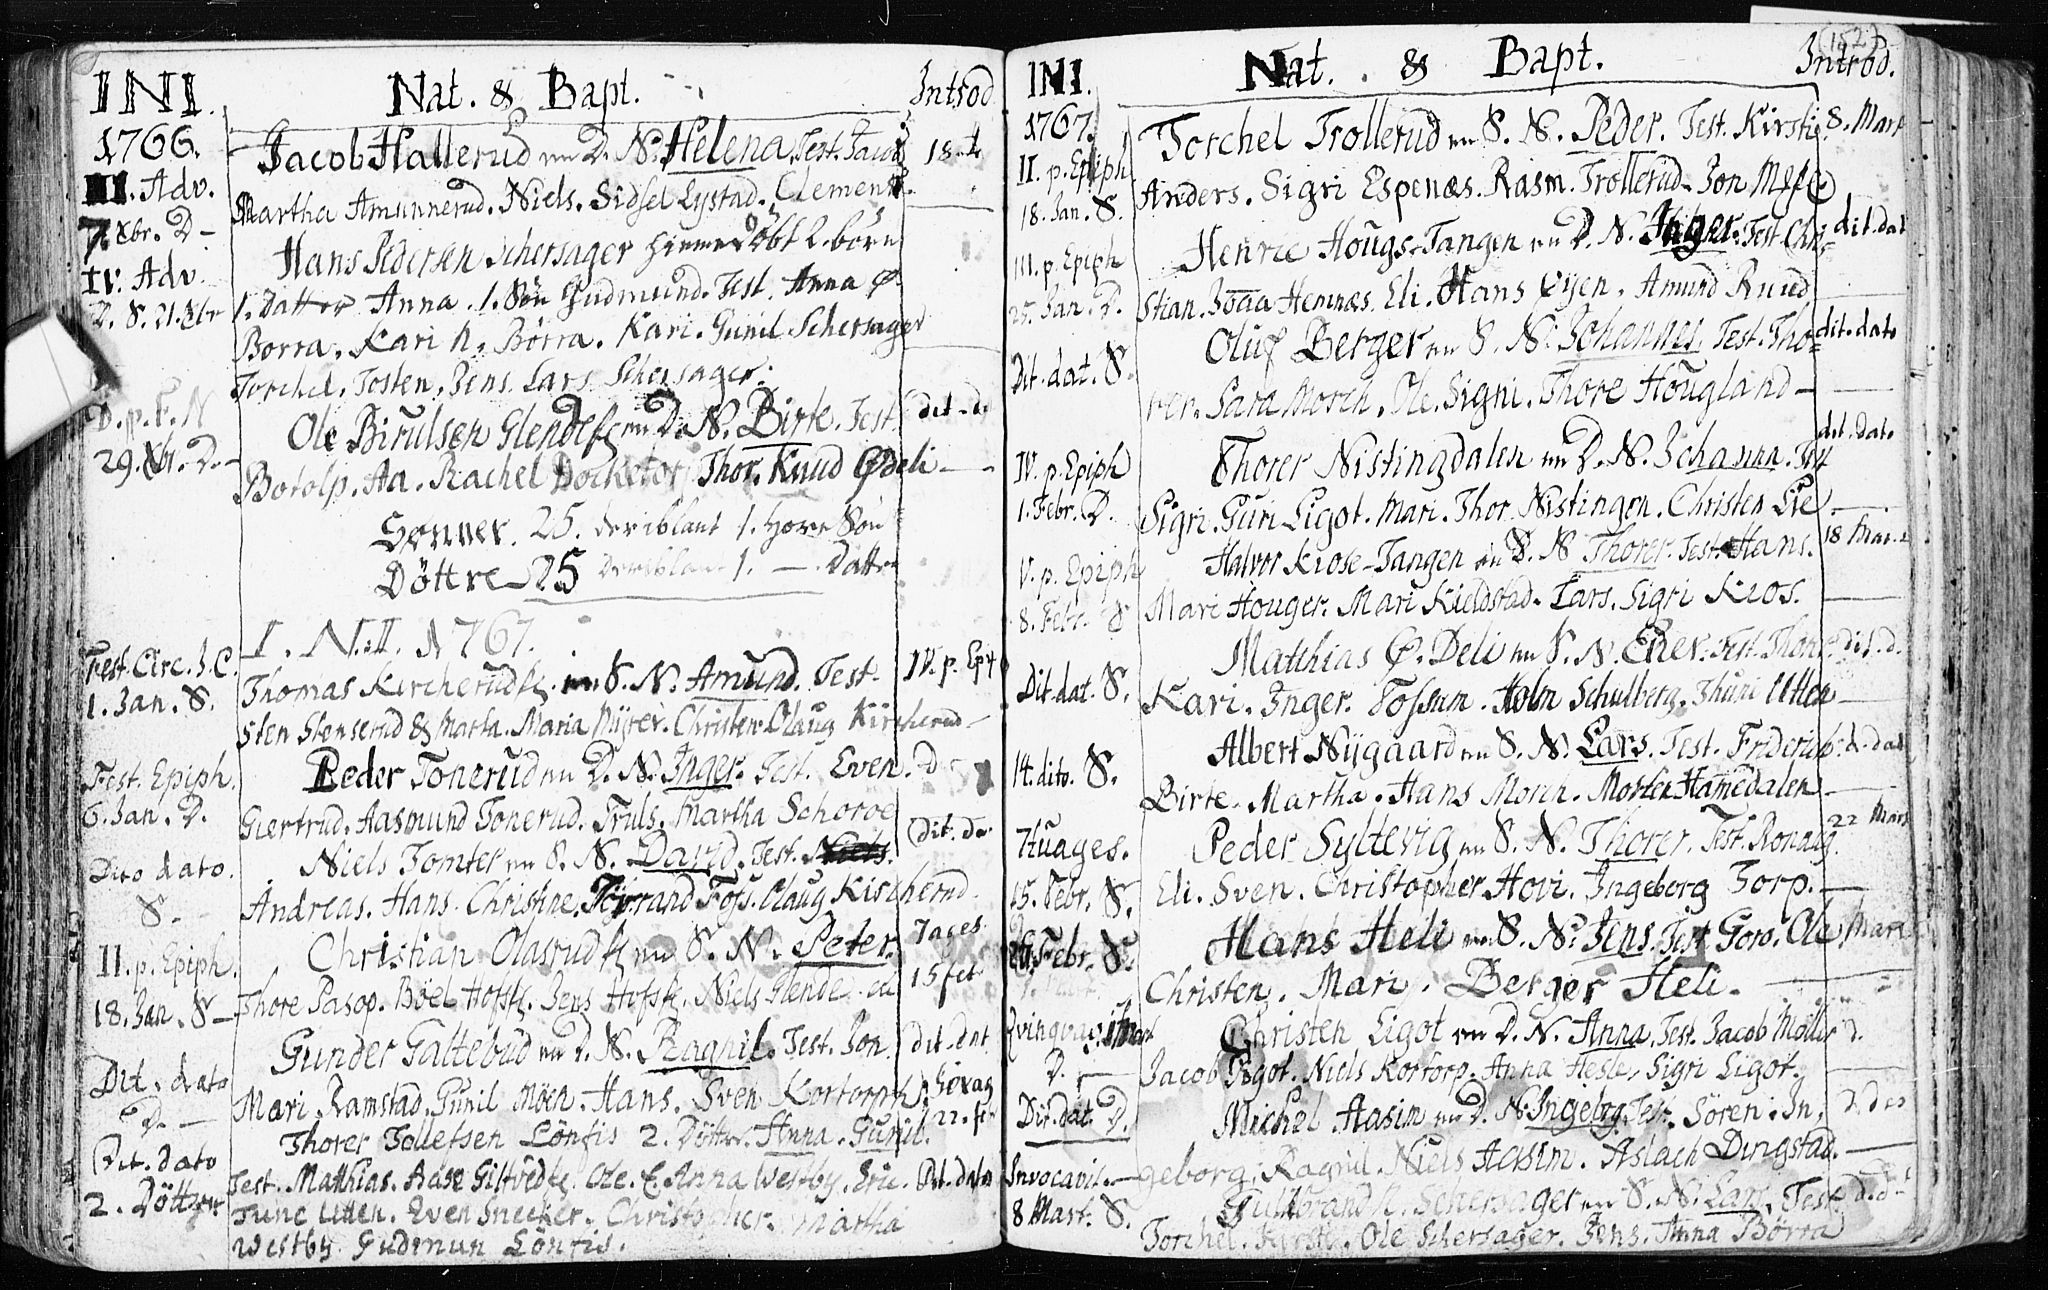 INI. Nat. & Bapt. Introd
1766. Jacob Hallerud en D. N. Helena. Test. Jacob 18.
III. Adv. Martha Amunnerud. Niels. Sidsel Lystad. Clement.
7. Xbr. D - Hans Pedersen Schersager hiemedöbt 2. börn
IV. Adv. 1. Datter Anna. 1. Sön Gudmund. Test. Anna Ø.
D. S. 21. Xbr Borra. Kari N. Börra. Kari. Gunil Schersager
Torchel. Tosten. Jens. Lars Schersager.
D. p. F. N Ole Birulsen Glende en D. N. Birte. Test. dit. d
29. Xbr. D. - Botolp. Aa. Rachel Thor. Knud Ødeli -
Sönner. 25. deriblant 1. Hore Sön
Döttre 25 deriblan 1. - Datter
I. N. I. 1767.
Fest. Circ. J. C. Thomas Kircherud en S. N. Amund. Test. IV. p. Ep
1. Jan. S. Sten Stenserud & Marta. Maria Myrer. Christen. Olaug Kircherud -
Fest. Epiph. Peder Tonerud en D. N. Inger. Test. Even. D
6. Jan. D. Giertrud. Aasmund Tonerud. Truls. Martha Schoroe
Dito dato. Niels Tomter en S. N. David. Test. Dit. da
S. - Andreas. Hans. Christine. Foss. Olaug Kircherud.
II. p. Epiph. Christian Olasrud en S. N. Peter. 7ages
18. Jan. S - Thore Pasop. Böel Hofst. Jens Hofst. Niels Glende 15 feb
Dit. dato Gunder Galtebud en D. N. Ragnil. Test. Jon dit. dat
D. - Mari Ramstad. Gunil Moen. Hans. Sven Kortorph. 22. f
Dit. dato Thorer Tolletsen Lönfis 2. Döttre. Anna. Gunil.
2. Döttre Test. Mathias. Aase Giltvedt. Ole. E. Anna Westby. Eric. Dit. dato
Tune Utten. Even Snecker. Christopher. Martha
Westby Gudmun Lönfis.
(152)
INI. Nat. & Bapt. Introd.
1767. Torchel Trollerud en S. N. Peder. Test. Kirsti 8. Mart
II. p. Epiph. Anders. Sigri Espenæs. Rasm. Trollerud. Jon
18. Jan. S. Henric Hougs-Tangen en D. N. Inger. Test. Chri- dit. dat
III. p. Epiph stian. Hemnæs. Eli. Hans Øyen. Amund Ruud
25. Jan. D. Oluf Berger en S. N. Johannes. Test. Tho- dit. dato
Dit. dat. S. rer. Sara Morch. Ole. Signi. Thore Hougland -
IV. p. Epiph Thorer Nistingdalen en D. N. Johanna. Test dit. dato
1. Febr. D. Sigri. Guri Ligot. Mari. Thor. Nistingen. Christen Lie -
V. p. Epiph Halvor Krose-Tangen en S. N Thorer. Test. Hans. 18 Mar
8. Febr. S Mari Houger. Mari Kieldstad. Lars. Sigri Kros.
Dit. dat. S. Matthias Ø. Deli en S. N. Ener. Test. Thore. dit. d.
Kari. Inger. Fossum. Holm Schulberg. Thuri Utten
14. dito. S. Albert Nygaard en S. N. Lars. Test. Friderich d. dat
Birte. Martha. Hans Morch. Morten Hamedalen -
7tuages. Peder Syltevig en S. N. Thorer. Test. Ronaug 22 Mars
15. Febr. S. Eli. Sven. Christopher Hovi. Ingeborg Torp. -
Febr. S. Hans Heli en S. N: Jens. Test Goro. Ole Mari
Christen. Mari. Berger Heli. -
Qvinqvag. 1 Mart Christen Ligot en D. N. Anna. Test. Jacob Möller D.
D. - Jacob Ligot. Niels Kortorp. Anna Hesle. Sigri Ligot.
Dit. dat. D. Michel Aasim en D. N. Ingebrg. Test. Sören. In. D. d
Invocavit. - geborg. Ragnil. Niels Aasim. Aslach Dingstad. -
8 Mart. S. Gulbrand N. Schersager en S. N. Lars. Test. D. d
Torchel. Kirsti. Ole Schersager. Jens. Anna Börra